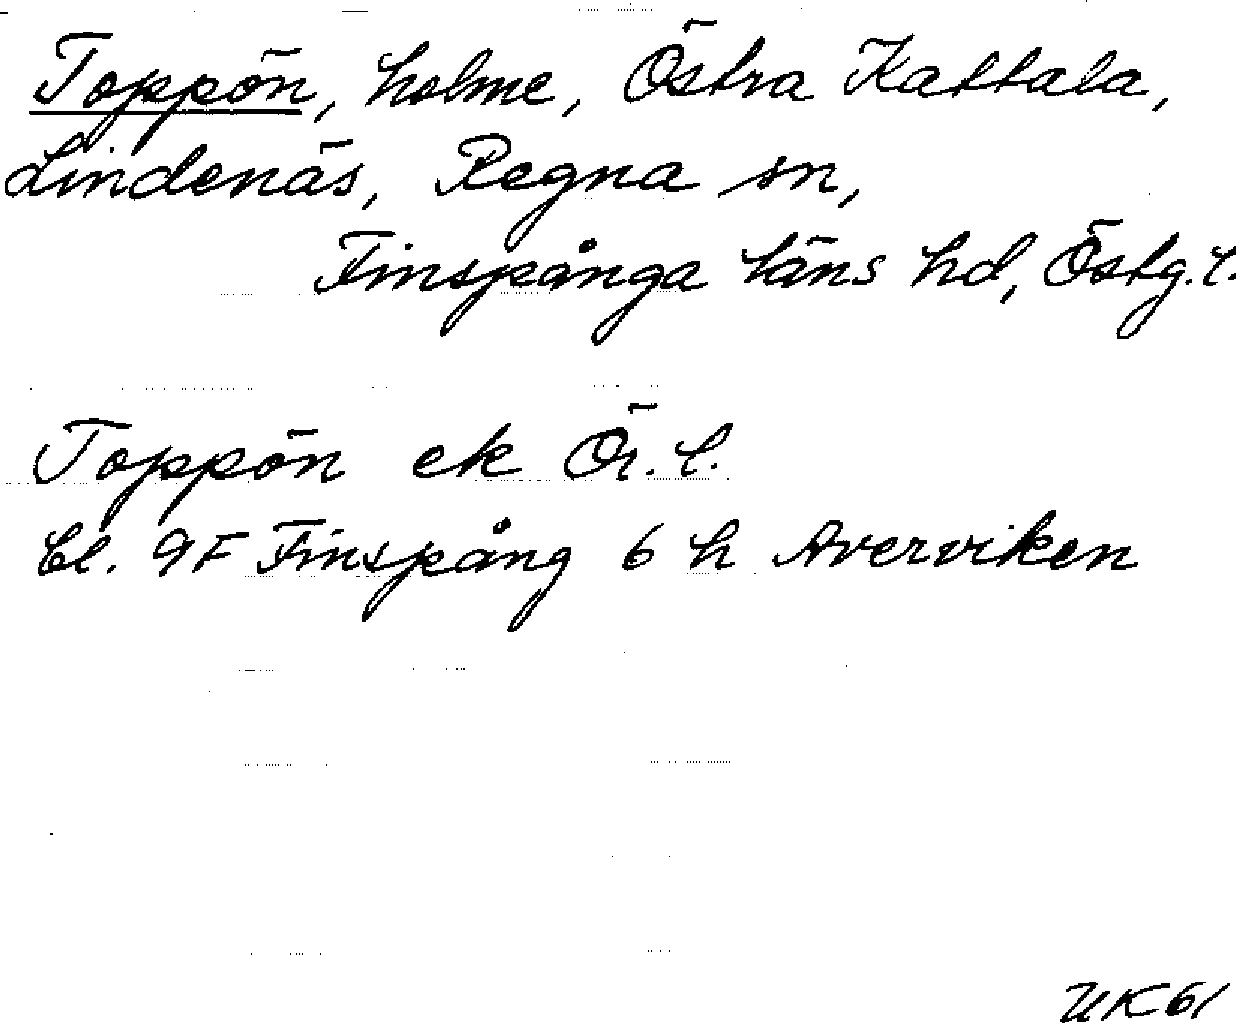 Toppön, holme, Östra Kattala,
Lindenäs, Regna sn,
Finspånga läns hd, Östg. l.
Toppön ek Ör. l.
bl. 9F Finspång 6 h Averviken
UK61